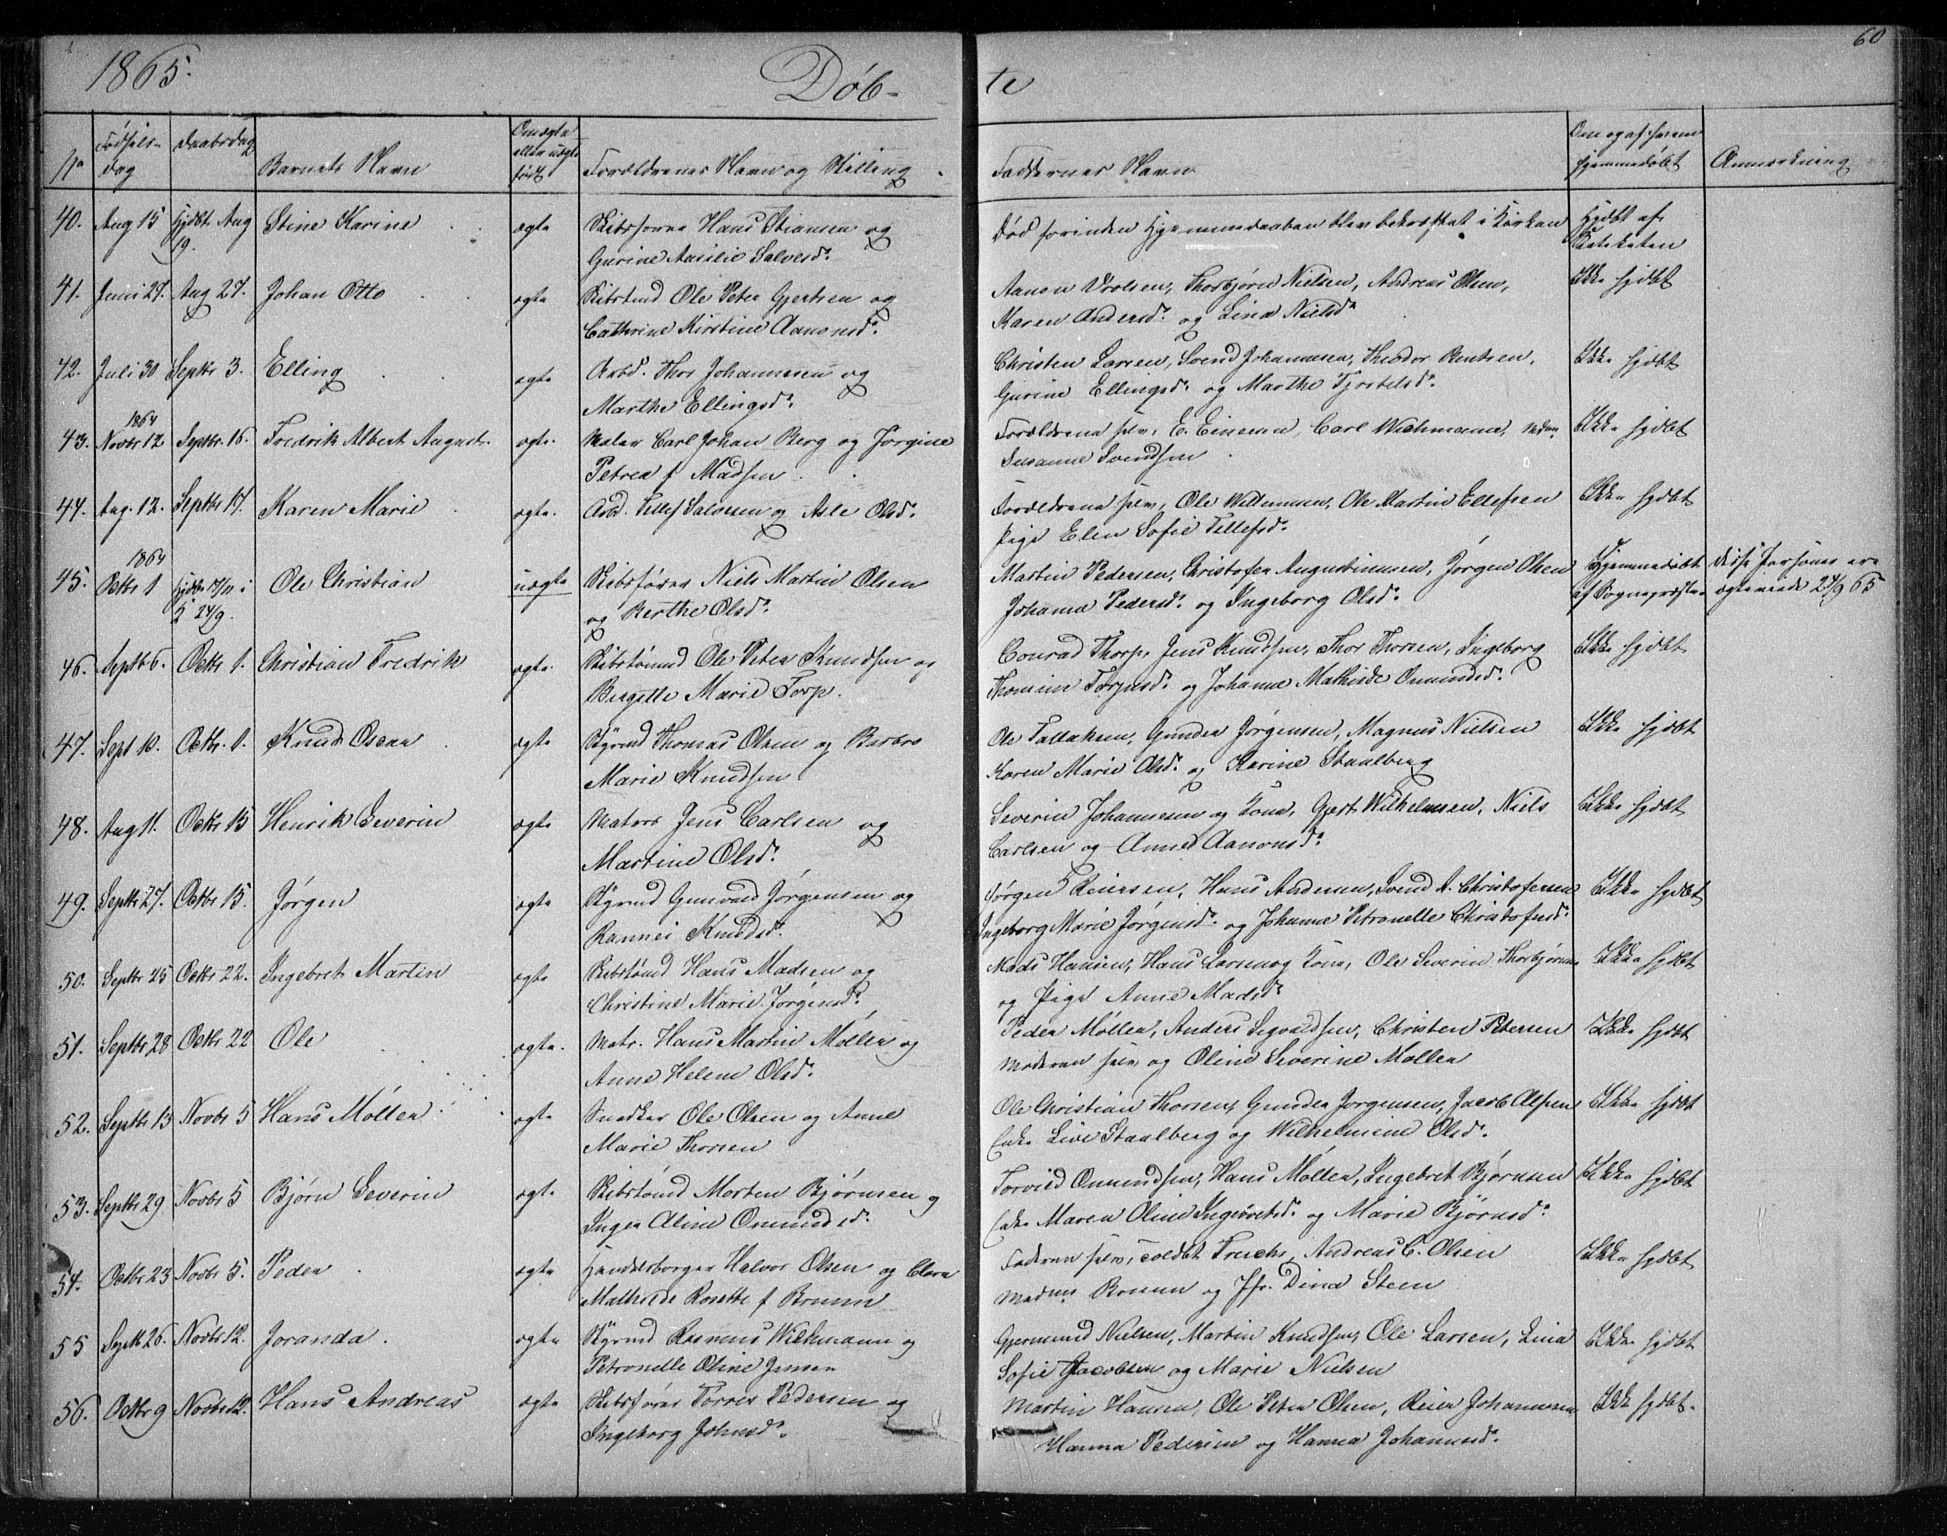 1865.
Døb-
te
60
No
Fødsels-
dag
Daabsdag
Barnets Navn
Om ægte
eller uægte
født
Forældrenes Navn og Stilling
Faddernes Navn
Om og af hvem
hjemmedøbt
Anmerkning
40. Aug 15 Hjdbt Aug Stine Karine ægte Skibsfører Hans Stiansen og Død forinden Hjemmedaaben blev bekræftet i Kirken Hjdbt af
19. Gurine Aasilie Salvesd. Katekеten
41. Juni 27. Aug 27. Johan Otto ægte Skibstmd Ole Peter Gjertsen og Aanon Vrolsen, Thorbjørn Nielsen, Andreas Olsen, Ikke hjdbt
Cathrine Kirstine Aanonsd. Karen Andersd. og Lina Nielsd.
42. Juli 30 Septbr 3. Elling ægte Arbd. Thor Johannesen og Christen Larsen, Svend Johannesen, Theodor Bentsen, Ikke hjdbt
Marthe Ellingsd. Gurine Ellingsd. og Marthe
1864
43. Novbr 12 Septbr. 16. Fredrik Albert August. ægte. Maler Carl Johan Berg og Jørgine Forældrene selv, E. Einersen, Carl Wichmann, Mdm. Ikke hjdbt
Petrea f Madsen Susanne Svendsen
44. Aug. 12. Septbr 17. Karen Marie ægte. Arbd. Tellef Salvesen og Asle Olsd. Forældrene selv, Ole Willumsen, Ole Martin Ellefsen Ikke hjdbt
Pige Elen Sofie Tellefsd.
1864
45. Octbr 1 Hjdbt 13/11 i Ole Christian uægte Skibsfører Niels Martin Olsen Martin Pedersen, Christofer Augustinusen, Jørgen Olsen Hjemmedøbt Disse Personer ere
K 24/9. og Berthe Olsd. Johanne Pedersd. og Ingeborg Olsd. af Sognepræsten ægteviede 24/9 65
46. Septb 6. Octbr 1. Christian Fredrik ægte. Skibstømd Ole Peter Knudsen og Conrad Thorp, Jens Knudsen, Thor Thorsen, Ingeborg Ikke hjdbt
Bergitte Marie Torp. Thomine Torjusd. og Johanne Mathilde Omundsd.
47. Sept 10. Octbr. 1. Knud Oscar ægte Styrmd Thomas Olsen og Barbro Ole Tallaksen, Gunder Jørgensen, Magnus Nielsen Ikke hjdbt
Marie Knudsen Karen Marie Olsd. og Karine Staalberg
48. Aug 11. Octbr 15 Henrik Severin ægte Matros Jens Carlsen og Severin Johannesen og Kone, Gjert Wilhelmsen, Niels Ikke hjdbt
Martine Olsd. Carlsen og Anne Aanonsd.
49. Septbr 27. Octbr 15. Jørgen ægte Styrmd Gunvald Jørgensen og Jørgen Reiersen, Hans Andersen, Svend A. Christofersen Ikke hjdbt
Rannei Knudsd. Ingeborg Marie Jørgensd. og Johanne Petronelle Christofersd.
50. Septbr 25 Octbr 22. Ingebret Martin ægte Skibstømd Hans Madsen og Mads Hansen, Hans Larsen og Kone, Ole Severin Thorbjørnsen Ikke hjdbt
Christine Marie Jørgensd. og Pige Anne Madsd.
51. Septbr 28 Octbr 22 Ole ægte. Matr. Hans Martin Møller og Peder Møller, Anders Sigvaldsen, Christen Petersen Ikke hjdbt
Anne Helene Olsd. Moderen selv og Oline Severine Møller
52. Septbr 13 Novbr 5 Hans Møller ægte Snedker Ole Olsen og Anne Ole Christian Thorsen, Gunder Jørgensen, Jacob Olsen Ikke hjdbt
Marie Thorsen Enke Live Staalberg og Wilhelmine Olsd.
53. Septbr 29 Novbr 5 Bjørn Severin ægte Skibstømd Morten Bjørnsen og Torvild Omundsen, Hans Møller, Ingebret Bjørnsen Ikke hjdbt
Inger Oline Omundsd. Enke Maren Oline Ingebretsd. og Marie Bjørnsd.
54. Octbr 23 Novbr 5. Peder ægte Handelsborger Halvor Olsen og Clara Faderen selv, Fuchs, Andreas C. Olsen Ikke hjdbt
Mathilde Rosette f Brunn Madm. Brunn og Jfr. Dina Steen
55 Septb 26. Novbr 12. Joranda. ægte Styrmd Rasmus Wichmann og Gjermund Nielsen, Martin Knudsen, Ole Larsen, Lina Ikke hjdbt
Petronelle Oline Jensen Sofie Jacobsen og Marie Nielsen
56. Octbr 9 Novbr 12. Hans Andreas ægte Skibsfører Tørres Pedersen og Martin Hansen, Ole Peter Olsen, Reier Johannesen Ikke hjdbt.
Ingeborg Johnsd. Hanna Pedersen og Hanna Johannesd.